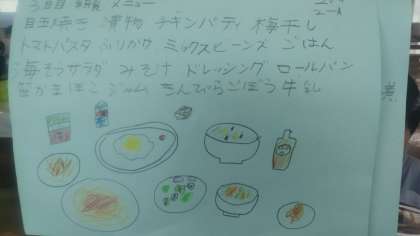 3日目 朝飯 メニュー
目玉焼き 漬物 チキンパティ 梅干し
トマトパスタ ふりかけ ミックスビーンズ ごはん
海そうサラダ みそ汁 ドレッシング ロールパン
笹かまぼこ ジャム きんぴらごぼう 牛乳